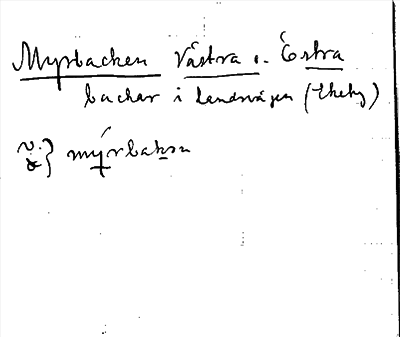 Myrbacken Västra o. Östra
backar i landsvägen (Ekeby)
v. ö } mýrbakẹn